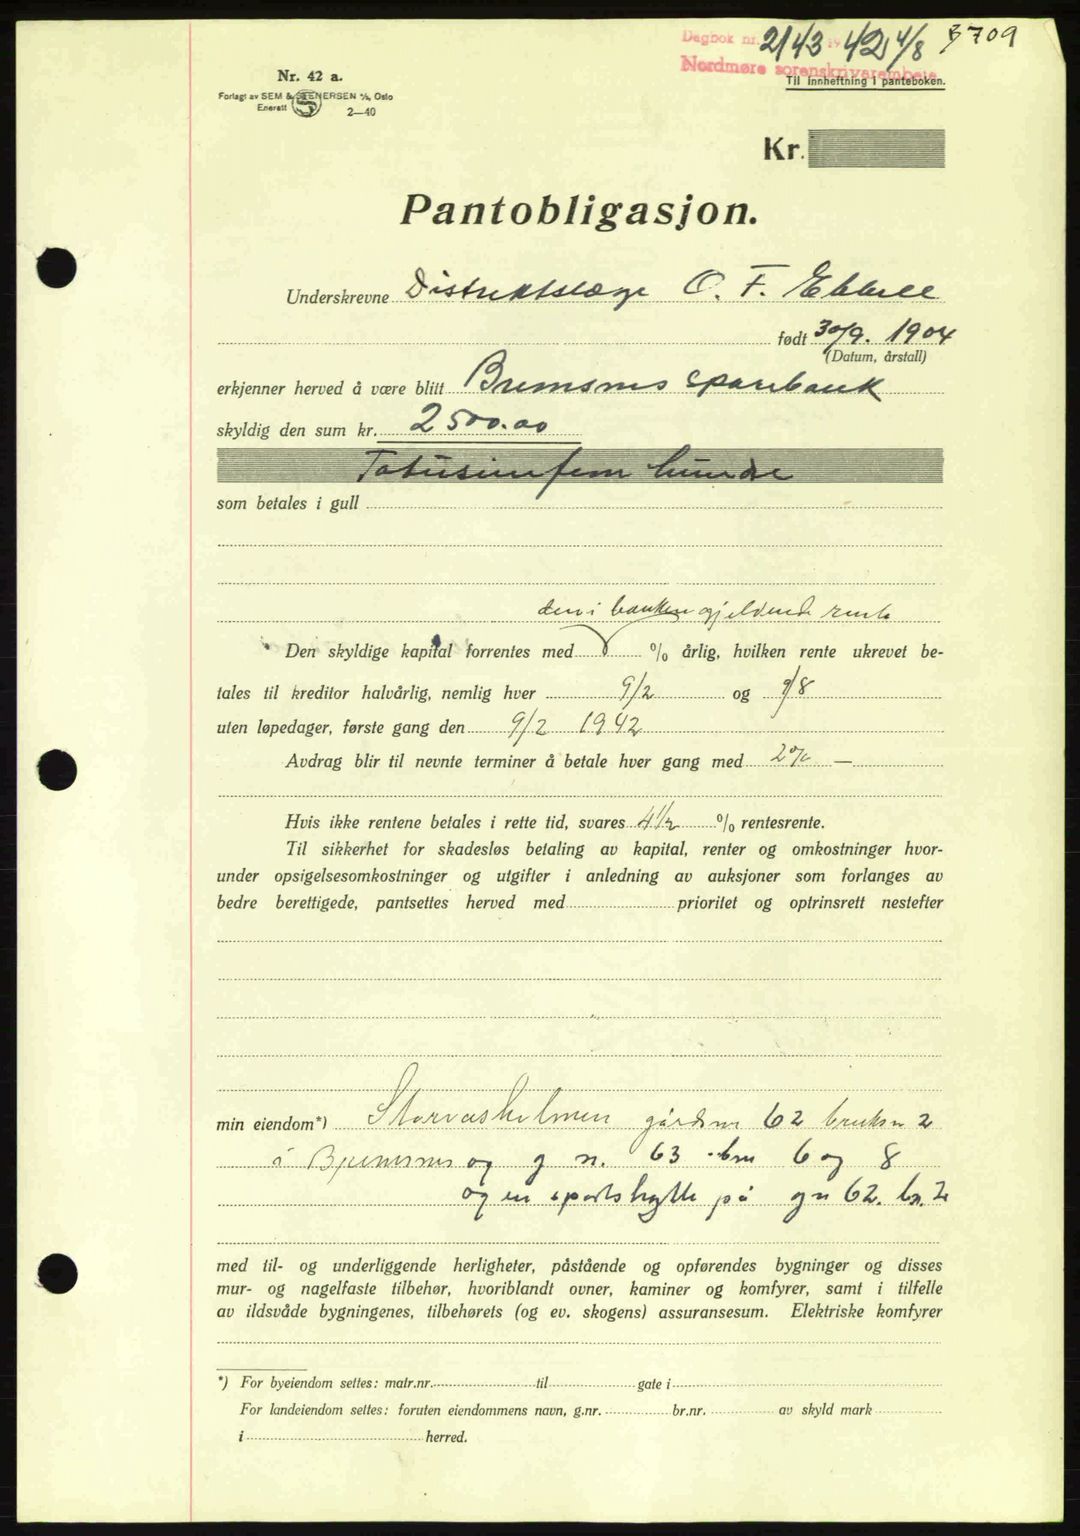 Dagbok nr. 2143 19 42 4/8 3709
Nordmøre sorenskriverembete
Til innheftning i panteboken.
Nr. 42 a.
Forlagt av SEM & STENERSEN A/S, Oslo
Enerett 2—40
Kr.
Pantobligasjon.
Underskrevne Distriktslæge O. F. Ebbell
født 30/9. 1904
(Datum, årstall)
erkjenner herved å være blitt Bremsnes sparebank
skyldig den sum kr. 2500.00
Totusimfem hundre
som betales i gull
den i banken gjeldende rente
Den skyldige kapital forrentes med % årlig, hvilken rente ukrevet be-
tales til kreditor halvårlig, nemlig hver 9/2 og 9/8
uten løpedager, første gang den 9/2 1942
Avdrag blir til nevnte terminer å betale hver gang med 2% —
Hvis ikke rentene betales i rette tid, svares 4½ % rentesrente.
Til sikkerhet for skadesløs betaling av kapital, renter og omkostninger hvor-
under opsigelsesomkostninger og utgifter i anledning av auksjoner som forlanges av
bedre berettigede, pantsettes herved med prioritet og optrinsrett nestefter
min eiendom*) Storvasholmen gårdsnr 62 bruksn 2
i Bremsnes og g n. 63 bru 6 og 8
og en sportshytte på gn 62. bn. 2
med til- og underliggende herligheter, påstående og opførendes bygninger og disses
mur- og nagelfaste tilbehør, hvoriblandt ovner, kaminer og komfyrer, samt i tilfelle
av ildsvåde bygningenes, tilbehørets (og ev. skogens) assuransesum. Elektriske komfyrer
*) For byeiendom settes: matr.nr. til gate i
For landeiendom settes: foruten eiendommens navn, g.nr. br.nr. av skyld mark
i herred.